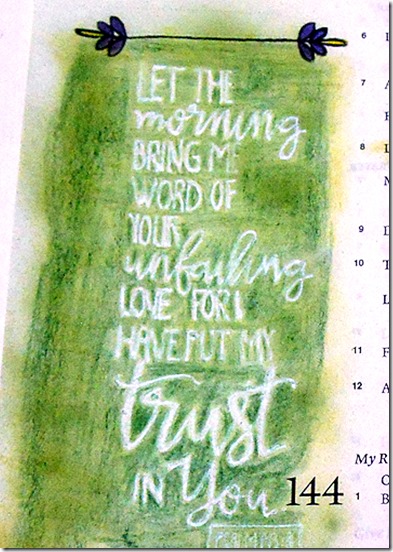 LET THE
morning
BRING ME
WORD OF
YOUR
unfailing
LOVE FOR I
HAVE PUT MY
trust
IN You
6 L
7 A
8 L
9 D
10 T
L
11 F
12 A
My R
144
C
1 B
Give